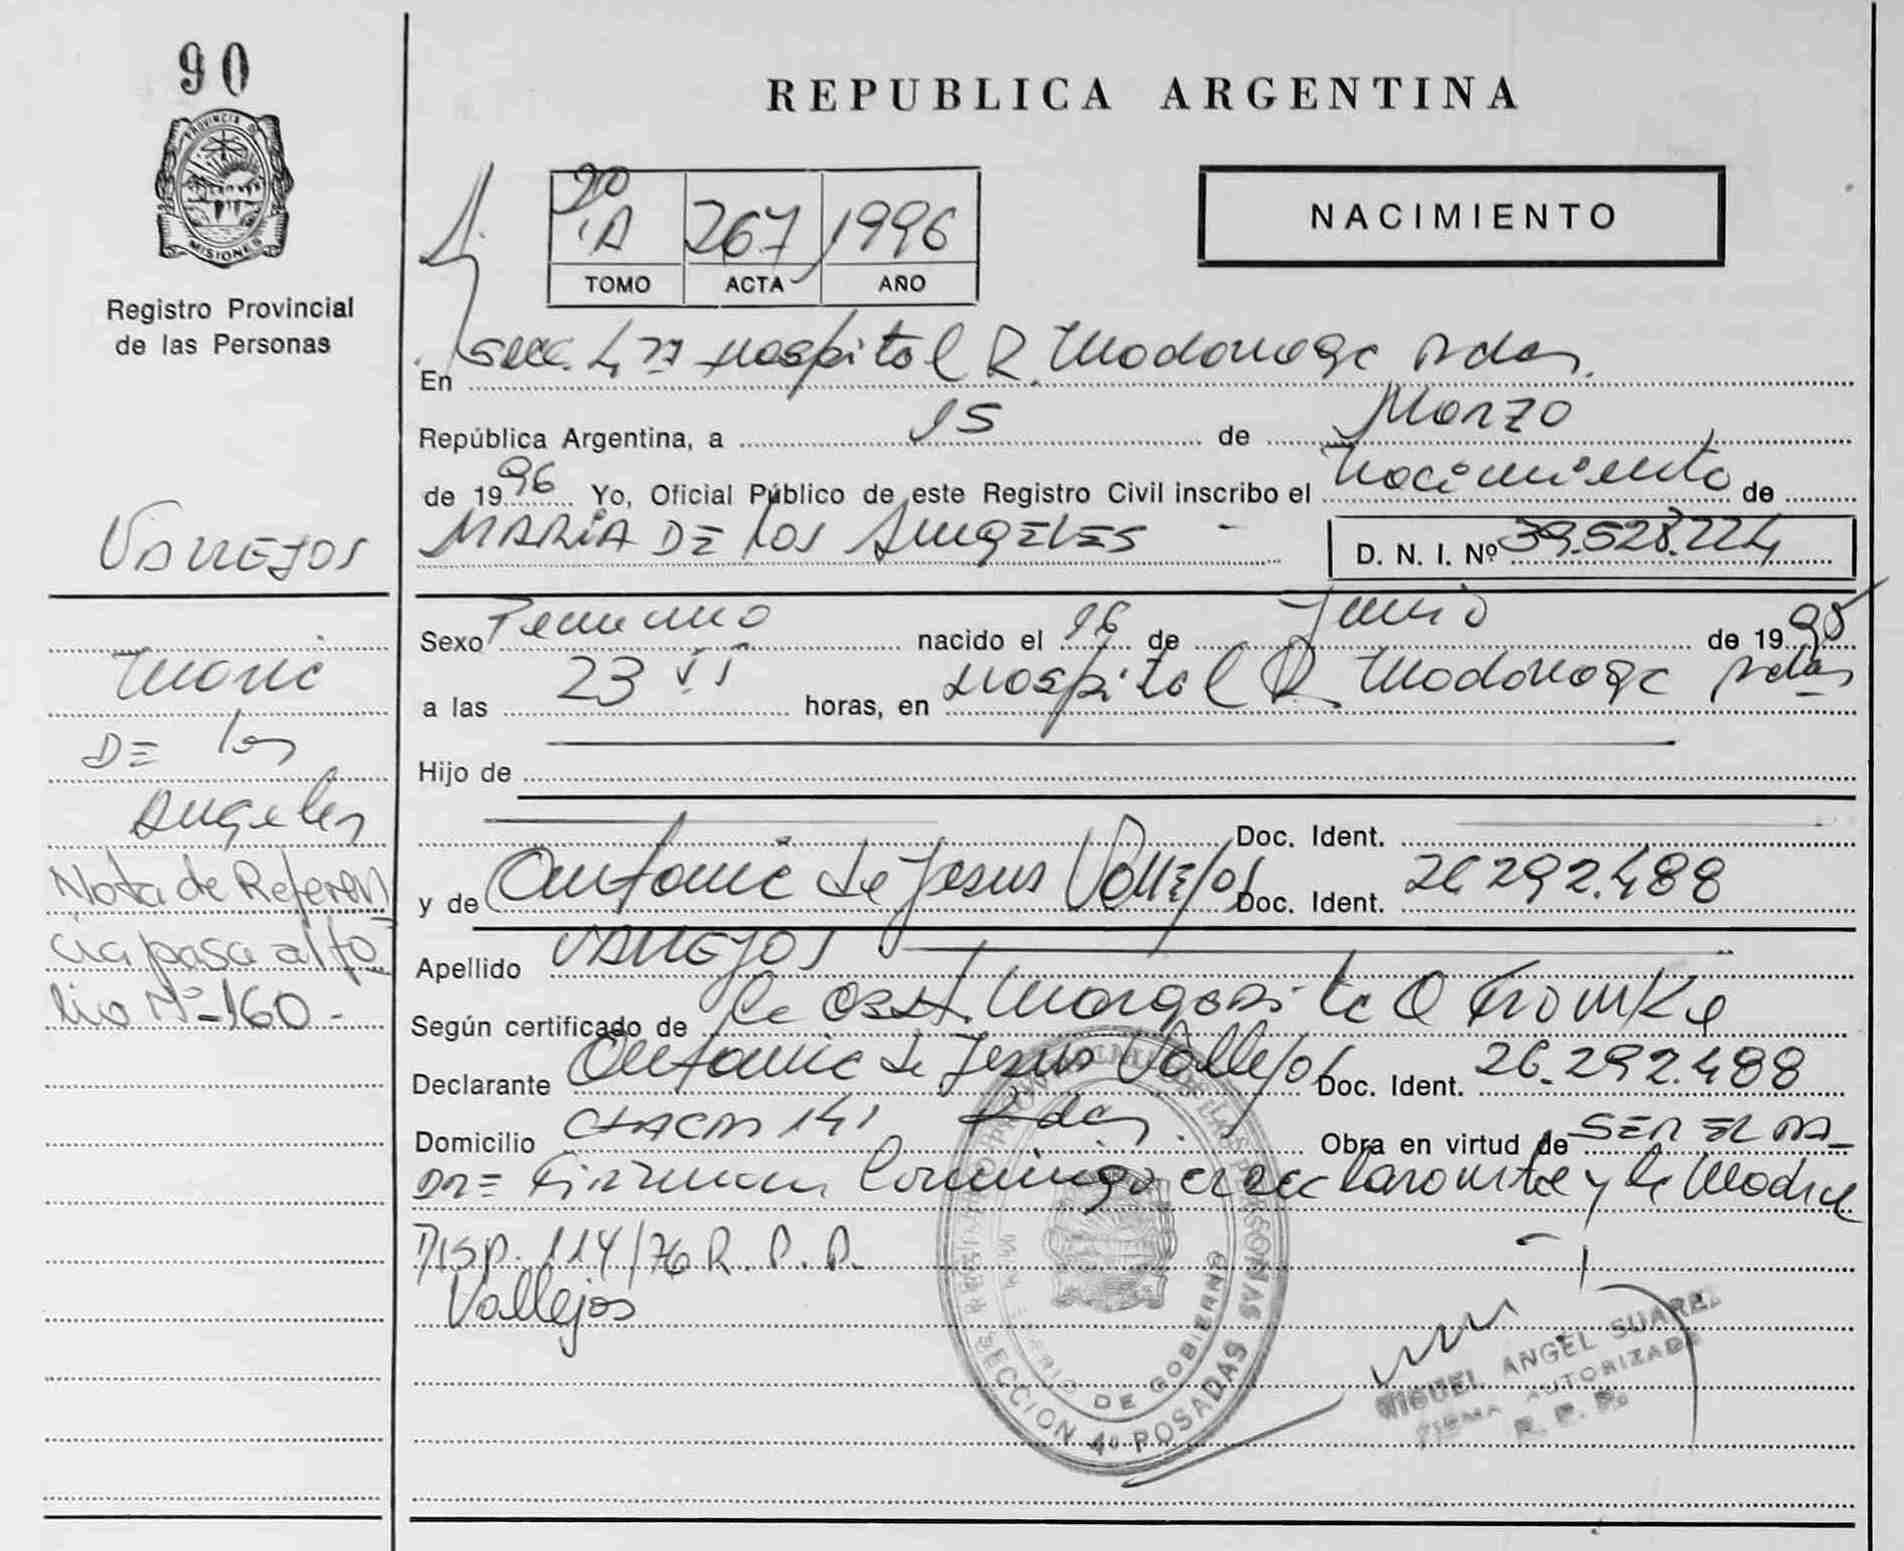 90
PROVINCIA DE
MISIONES
Registro Provincial
de las Personas
REPUBLICA ARGENTINA
NACIMIENTO
90
1A 267 1996
TOMO ACTA AÑO
En Secc. 4ta Hospital R. Madariaga Pdas.
República Argentina, a 15 de Marzo
de 1996 Yo, Oficial Público de este Registro Civil inscribo el Nacimiento de
MARIA DE los ANGELES
D. N. I. Nº 39.528.224
Sexo Femenino nacido el 16 de Junio de 1995
a las 23 horas, en Hospital R. Madariaga Pdas
Hijo de
Doc. Ident.
y de Antonia de Jesus Vallejos Doc. Ident. 26.292.488
Apellido VALLEJOS
Según certificado de la Obst. Margarita O
Declarante Antonia de Jesus Vallejos Doc. Ident. 26.292.488
Domicilio CHACO 141 Pdas. Obra en virtud de SER EL PA-
DRE Firman Conmigo el declarante y la Madre
DISP. 114/76 R. P. P.
Vallejos
VALLEJOS
Maria
DE los
Angeles
Nota de Referen
cia pasa al fo
lio Nº 160.-
MINISTERIO DE GOBIERNO
SECCION 4º POSADAS
MIGUEL ANGEL SUAREZ
FIRMA AUTORIZADA
R. P. P.